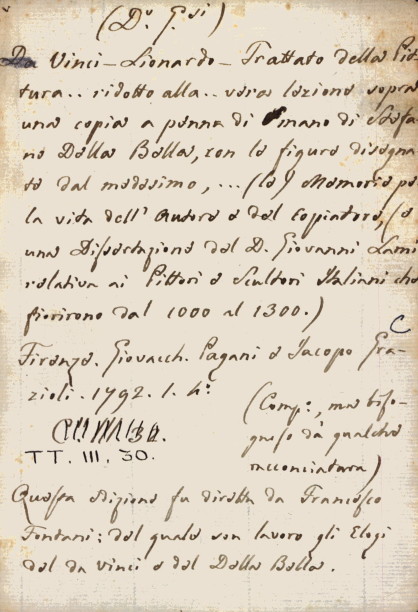 (D.s G.si)
Da Vinci - Lionardo - Trattato della Pit-
tura.. ridotto alla.. vera lezione sopra
una copia a penna di mano di Stefa-
no Della Bella, con le figure disegna-
te dal medesimo, ... (le) Memorie pe
la vita dell' Autore e del Copiatore, (e
una Dissertazione del D. Giovanni Lami
relativa ai Pittori e Scultori Italiani che
fiorirono dal 1000 al 1300.)
C
Firenze. Giovacch. Pagani e Jacopo Gra-
zioli. 1792. 1. 4.o
(Comp:, ma biso-
gnoso di qualche
racconciatura)
TT. III. 30.
Questa edizione fu diretta da Francesco
Fontani: del quale son lavoro gli Elogi
del da Vinci e del Della Bella.